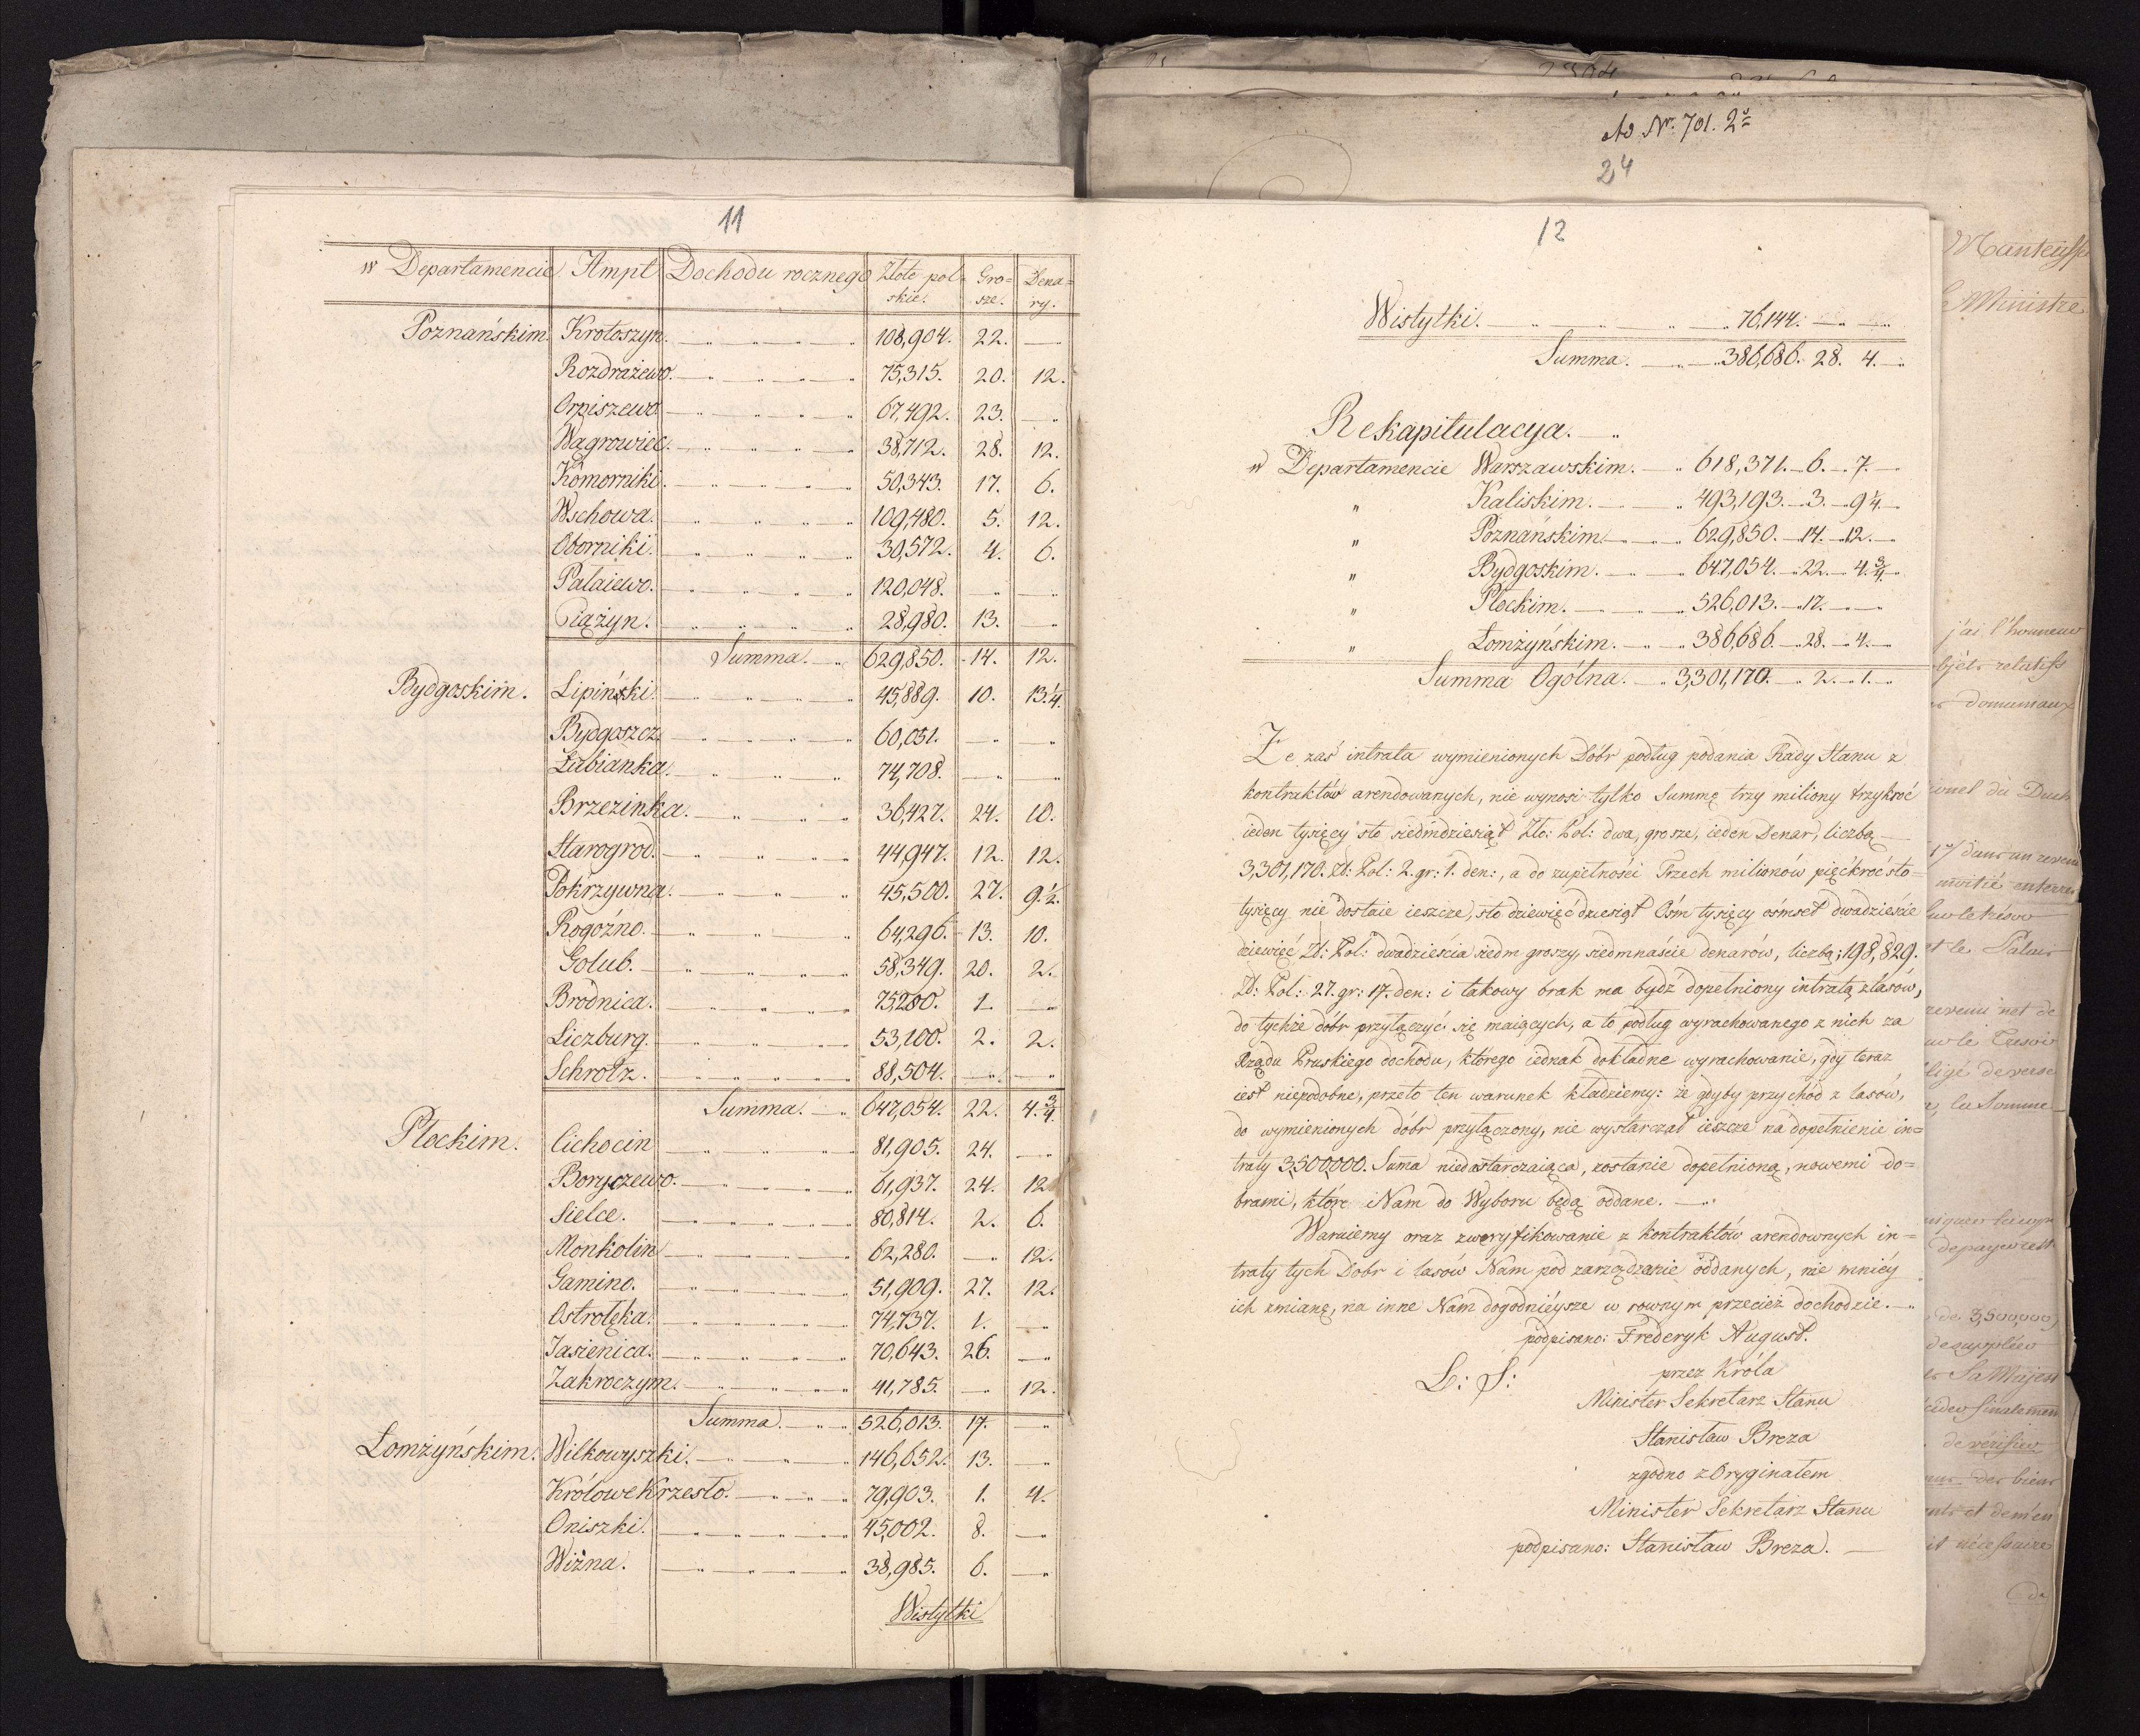 11
w Departamencie Ampt Dochodu rocznego Złote polskie. Grosze. Denary.
Poznańskim. Krotoszyn. 108,904. 22. —
Rozdrażewo. 75,315. 20. 12.
Orpiszewo 67,492. 23. —
Wągrowiec. 38,712. 28. 12.
Komorniki. 50,343. 17. 6.
Wschowa. 109,480. 5. 12.
Oborniki. 30,572. 4. 6.
Pałaiewo. 120,048. — —
Ciążyn. 28,980. 13. —
Summa. 629,850. 14. 12.
Bydgoskim. Lipiński. 45,889. 10. 13 1/4.
Bydgoszcz. 60,051. — —
Łubianka. 74,708. — —
Brzezinka. 36,427. 24. 10.
Starogrod. 44,947. 12. 12.
Pokrzywna. 45,500. 27. 9 1/2.
Rogoźno. 64,296. 13. 10.
Golub. 58,349. 20. 2.
Brodnica. 75,280. 1. —
Liczburg. 53,100. 2. 2.
Schrotz. 88,504. — —
Summa. 647,054. 22. 4 3/4.
Płockim. Cichocin 81,905. 24. —
Boryczewo. 61,937. 24. 12
Sielce. 80,814. 2. 6.
Monkolin 62,280. — 12.
Gamino. 51,909. 27. 12.
Ostrołęka. 74,737. 1. —
Jasienica. 70,643. 26. —
Zakroczym. 41,785. — 12.
Summa. 526,013. 17. —
Łomżyńskim. Wilkowyszki. 146,652. 13. —
Królowe Krzesło. 79,903. 1. 4.
Oniszki. 45,002. 8. —
Wizna. 38,985. 6. —
Wistytki
Ad Nr. 701. 2
24
12
Wistytki. 76,144. — —
Summa. 386,686. 28. 4.
Rekapitulacya.
w Departamencie Warszawskim. 618,371. 6. 7.
" Kaliskim. 493,193. 3. 9 1/4.
" Poznańskim. 629,850. 14. 12.
" Bydgoskim. 647,054. 22. 4 3/4.
" Płockim. 526,013. 17. —
" Łomżyńskim. 386,686. 28. 4.
Summa Ogólna. 3,301,170. 2. 1.
Że zaś intrata wymienionych Dóbr podług podania Rady Stanu z
kontraktów arendowanych, nie wynosi tylko Summę trzy miliony trzykroć
ieden tysięcy sto siedmdziesiąt Zło: Pol: dwa, grosze, ieden Denar, liczbą
3,301,170. Zł: Pol: 2. gr: 1. den:, a do zupełności Trzech milionów pięćkroć sto=
tysięcy nie dostaie ieszcze, sto dziewięćdziesiąt Ośm tysięcy ośmset dwadzieście
dziewięć Zł: Pol: dwadzieścia siedm groszy, siedmnaście denarów, liczbą; 198,829.
Zł: Pol: 27. gr: 17. den: i takowy brak ma bydź dopełniony intratą z lasów,
do tychże dóbr przyłączyć się maiących, a to podług wyrachowanego z nich za
Rządu Pruskiego dochodu, którego iednak dokładne wyrachowanie, gdy teraz
iest niepodobne, przeto ten warunek kładziemy: że gdyby przychód z lasów,
do wymienionych dóbr przyłączony, nie wystarczał ieszcze na dopełnienie in=
traty 3,500,000. Suma niedostarczaiąca, zostanie dopełnioną, nowemi do=
brami, które Nam do Wyboru będą oddane.
Waruiemy oraz zweryfikowanie z kontraktów arendownych in=
traty tych Dobr i lasów Nam pod zarządzanie oddanych, nie mniéy
ich zmianę, na inne Nam dogodniéysze w rownym przecież dochodzie.
podpisano: Frederyk August.
L: S: przez Króla
Minister Sekretarz Stanu
Stanisław Breza
zgodno z Oryginałem
Minister Sekretarz Stanu
podpisano: Stanisław Breza.
Ministre
j'ai l'honneur
relatifs
domaniaux
du Duch
revenu net de
de 3,500,000
Sa Majest
des biens